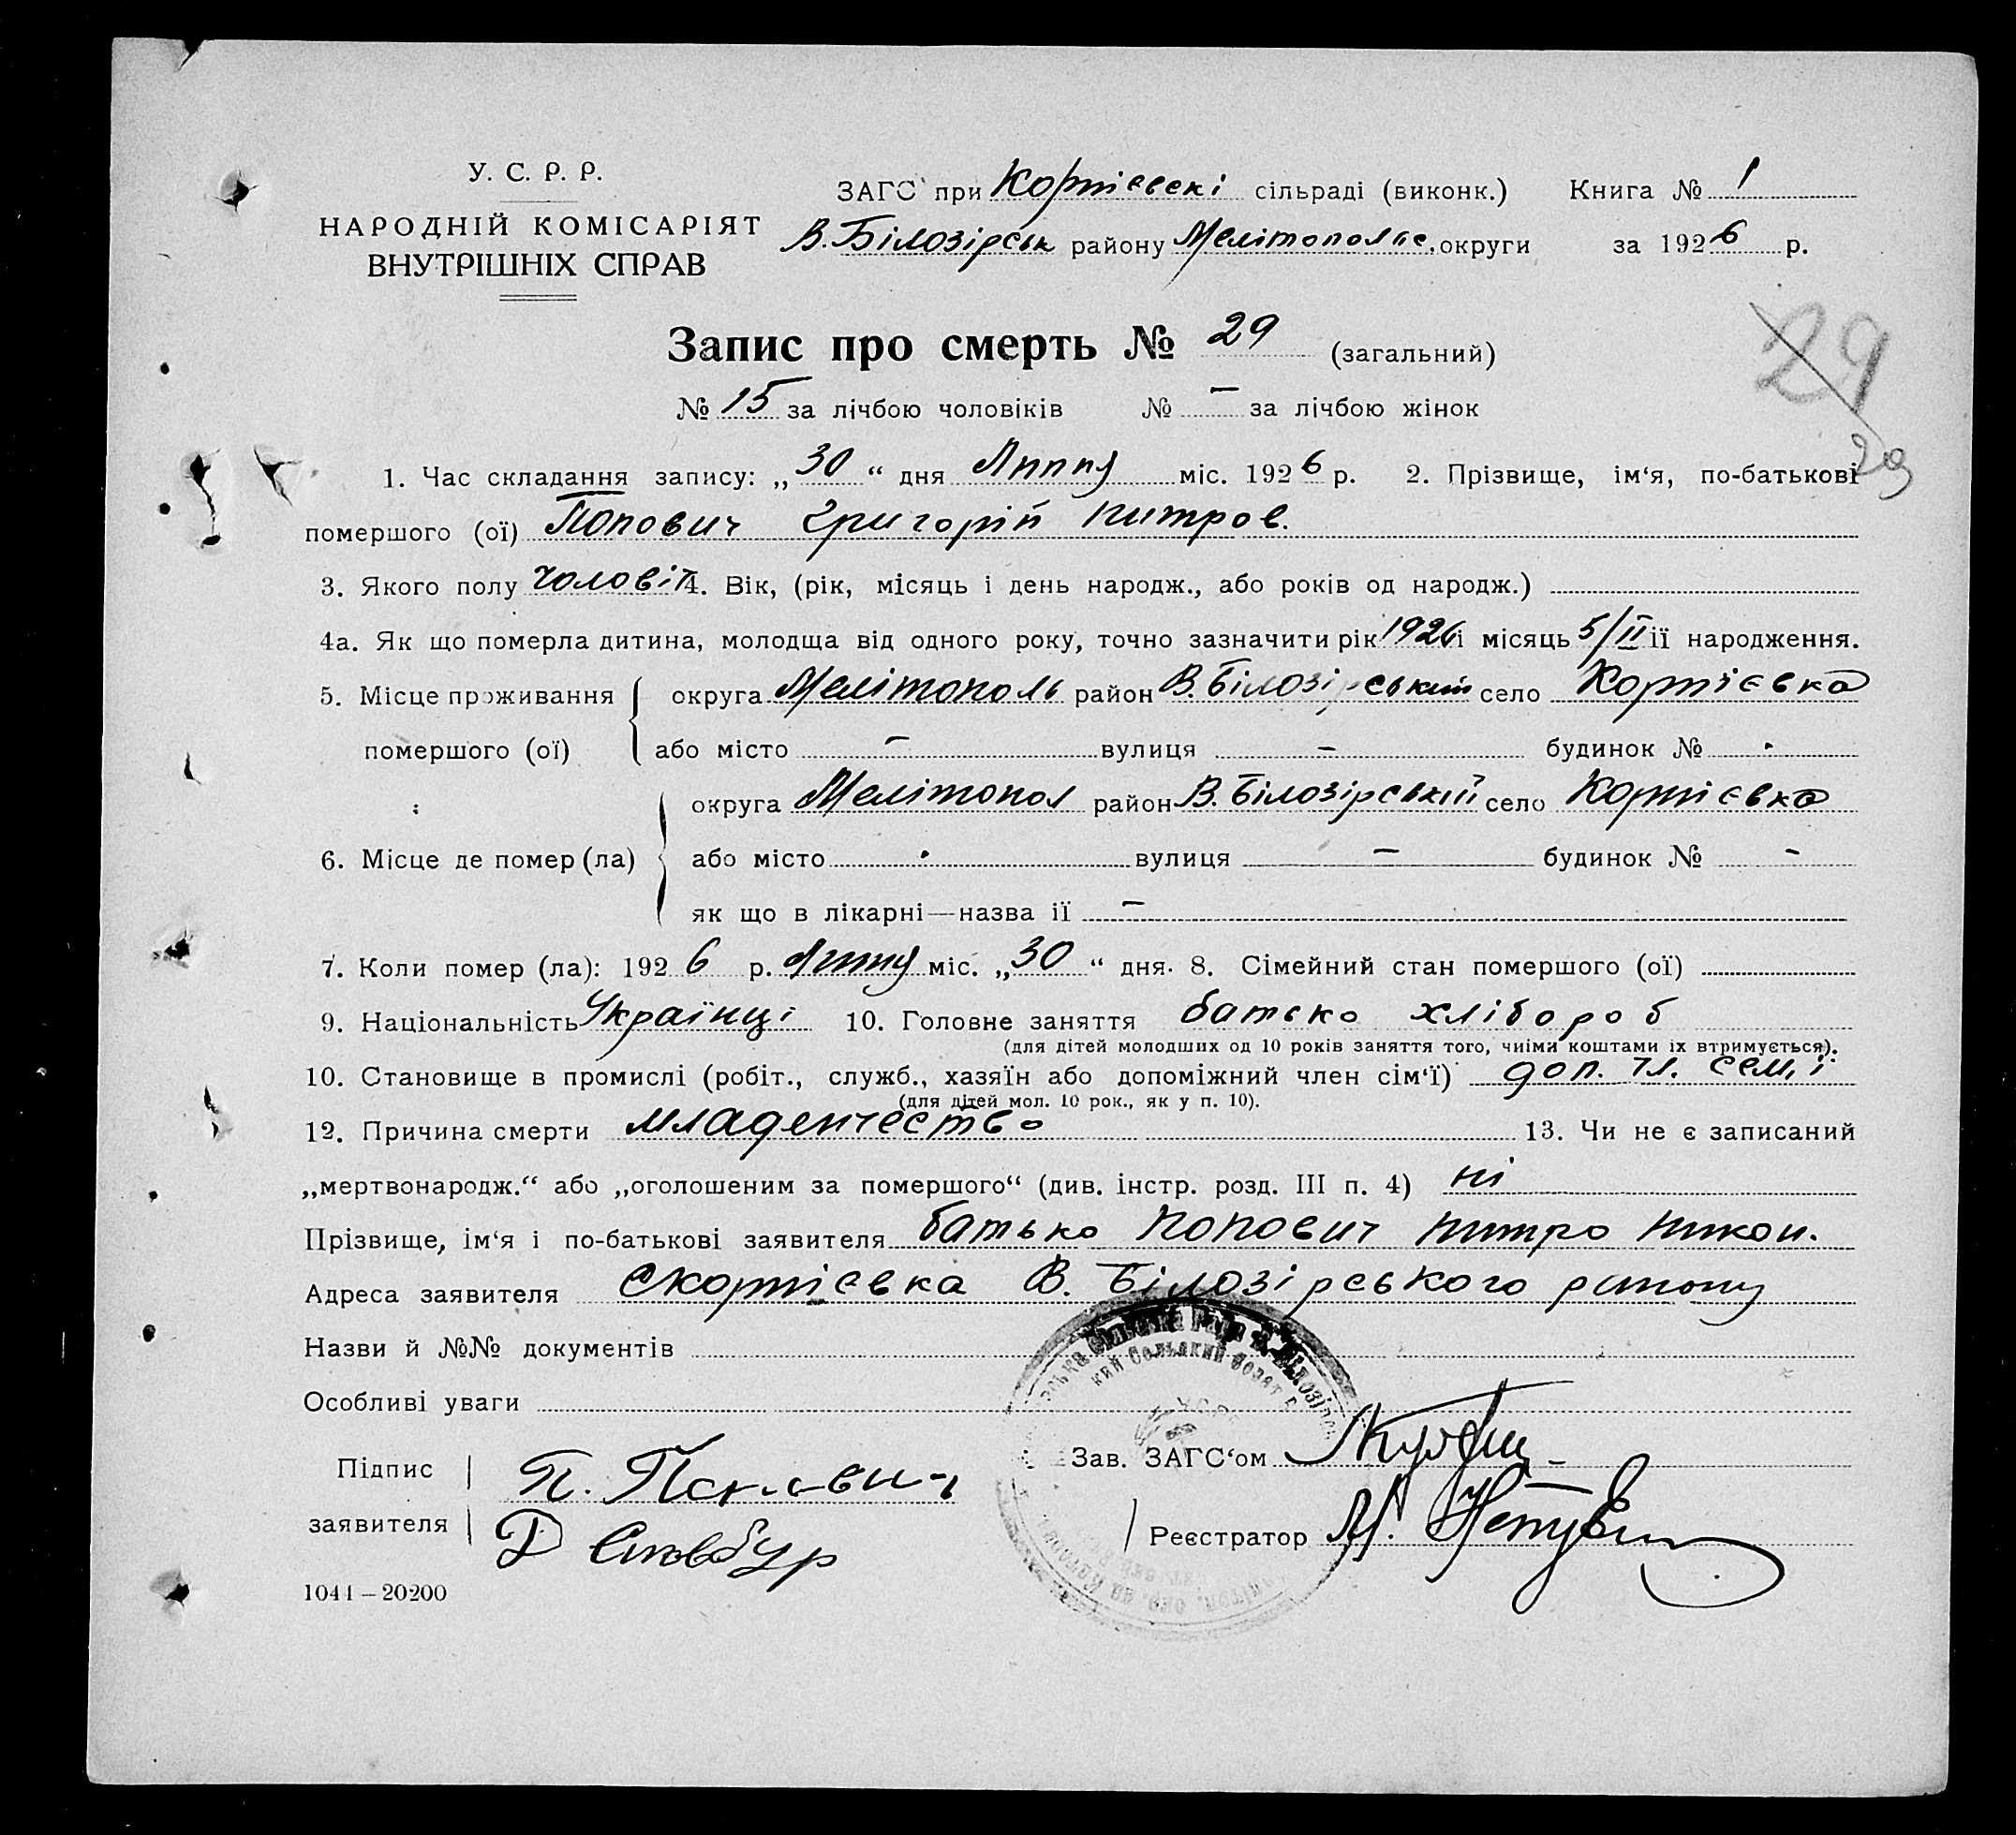 У. С. Р. Р.
НАРОДНІЙ КОМІСАРІЯТ
ВНУТРІШНІХ СПРАВ
ЗАГС при Корнієвскі сільраді (виконк.) Книга № 1
В. Білозірськ району Мелітопольс. округи за 1926 р.
Запис про смерть № 29 (загальний)
29
№ 15 за лічбою чоловіків № – за лічбою жінок
29
1. Час складання запису: „30“ дня Липня міс. 1926 р. 2. Прізвище, ім‘я, по-батькові
помершого (ої) Попович Григорій Питров.
3. Якого полу чоловіч 4. Вік, (рік, місяць і день народж., або років од народж.)
4а. Як що померла дитина, молодща від одного року, точно зазначити рік 1926 і місяць 5/II її народження.
5. Місце проживання округа Мелітополь район В. Білозірський село Корнієвка
помершого (ої) або місто – вулиця – будинок №
6. Місце де помер (ла) округа Мелітопол район В. Білозірський село Корнієвка
або місто вулиця – будинок № –
як що в лікарні—назва ії –
7. Коли помер (ла): 1926 р. Липня міс. „30“ дня. 8. Сімейний стан помершого (ої)
9. Національність Українці 10. Головне заняття батько хлібороб
(для дітей молодших од 10 років заняття того, чиїми коштами їх втримується).
10. Становище в промислі (робіт., служб., хазяїн або допоміжний член сім‘ї) доп. чл. семії
(для дітей мол. 10 рок., як у п. 10).
12. Причина смерти младенчество 13. Чи не є записаний
„мертвонародж.“ або „оголошеним за помершого“ (див. інстр. розд. III п. 4) ні
Прізвище, ім‘я і по-батькові заявителя батько Попович Питро Никон.
Адреса заявителя с Корнієвка В. Білозірського району
Назви й №№ документів
Особливі уваги
Підпис заявителя П. Попович
Д
Зав. ЗАГС‘ом
Реєстратор М.
1041–20200